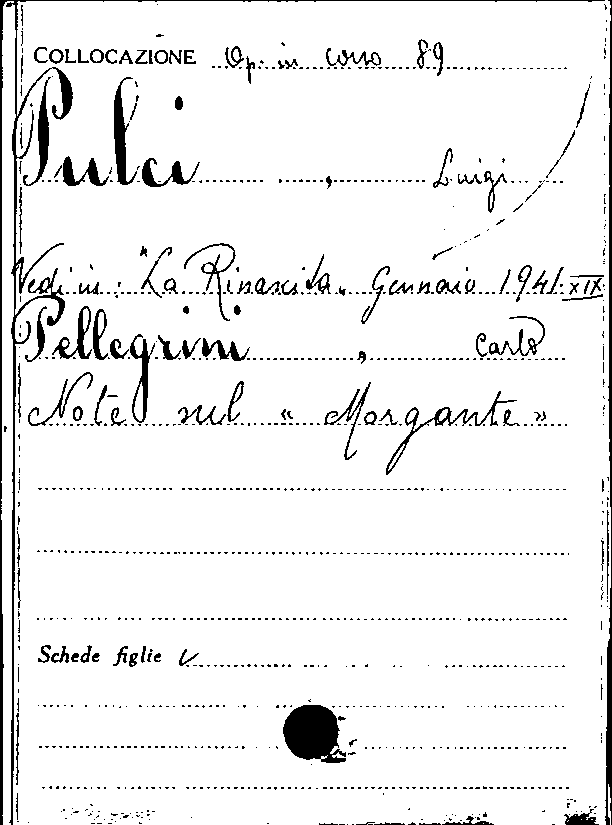 COLLOCAZIONE Op. in corso 89
Pulci , Luigi
Vedi in: "La Rinascita" Gennaio 1941 XIX
Pellegrini , Carlo
Note sul « Morgante »
Schede figlie